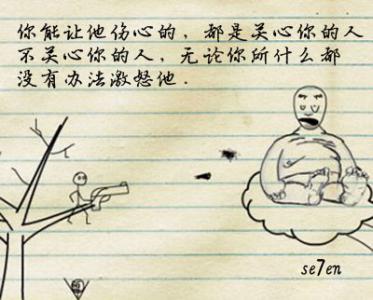 你能让他伤心的，都是关心你的人
不关心你的人，无论你所什么都
没有办法激怒他．
se7en